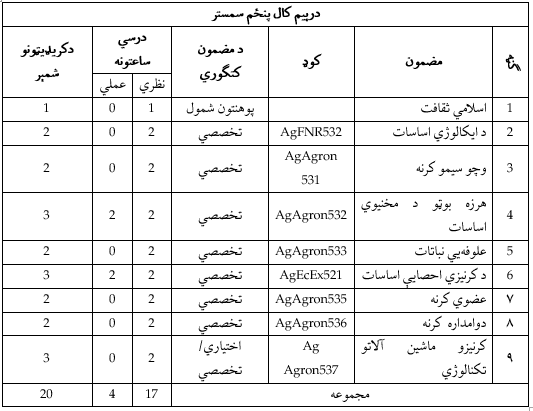 دریم کال پنځم سمستر
ګڼه	مضمون	کوډ	د مضمون کتګوري	درسي ساعتونه	دکریډیټونو شمېر
نظري	عملي
1	اسلامي ثقافت		پوهنتون شمول	1	0	1
2	د ایکالوژي اساسات	AgFNR532	تخصصي	2	0	2
3	وچو سیمو کرنه	AgAgron 531	تخصصي	2	0	2
4	هرزه بوټو د مخنیوي اساسات	AgAgron532	تخصصي	2	2	3
5	علوفه‌يي نباتات	AgAgron533	تخصصي	2	0	2
6	د کرنیزي احصایې اساسات	AgEcEx521	تخصصي	2	2	3
۷	عضوي کرنه	AgAgron535	تخصصي	2	0	2
۸	دوامداره کرنه	AgAgron536	تخصصي	2	0	2
۹	کرنیزو ماشین آلاتو تکنالوژي	Ag Agron537	اختیاري/ تخصصي	2	0	3
مجموعه	17	4	20